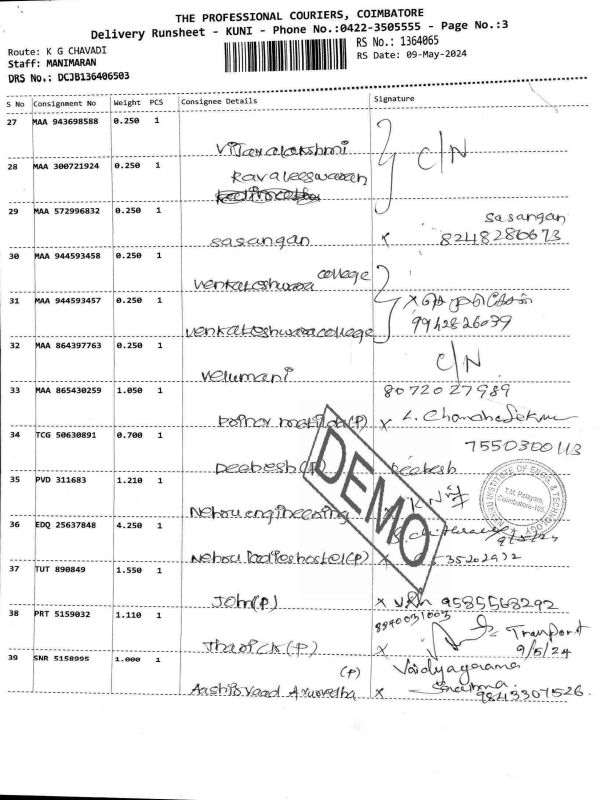 THE PROFESSIONAL COURIERS, COIMBATORE
Delivery Runsheet - KUNI - Phone No.:0422-3505555 - Page No.:3
Route: K G CHAVADI
RS No.: 1364065
Staff: MANIMARAN
RS Date: 09-May-2024
DRS No.: DCJB136406503
S No Consignment No Weight PCS Consignee Details Signature
27 MAA 943698588 0.250 1
Vijayalakshmi
C/N
28 MAA 300721924 0.250 1
Ravaleeswaran
29 MAA 572996832 0.250 1
Sasangan
sasangan x 8248286673
30 MAA 944593458 0.250 1
venkateshwara college
31 MAA 944593457 0.250 1
x
9942826039
venkateshwara college
32 MAA 864397763 0.250 1
C/N
velumani
33 MAA 865430259 1.050 1
8072027989
(P) x
34 TCG 50630891 0.700 1
7550300113
Deebesh (P) Deebesh
35 PVD 311683 1.210 1
Nehru engineering x
NEHRU INSTITUTE OF ENGG. & TECHNOLOGY
T.M. Palayam,
Coimbatore-105.
36 EDQ 25637848 4.250 1
Nehru ladies hostel (P) x
37 TUT 890849 1.550 1
John (P) x 9585568292
38 PRT 5159032 1.110 1
8840031003
Transport
9/5/24
(P) x
39 SNR 5158995 1.000 1
(P) Vaidyagrama
Aashirvaad Ayurvedha x Sharma
9843307526
DEMO